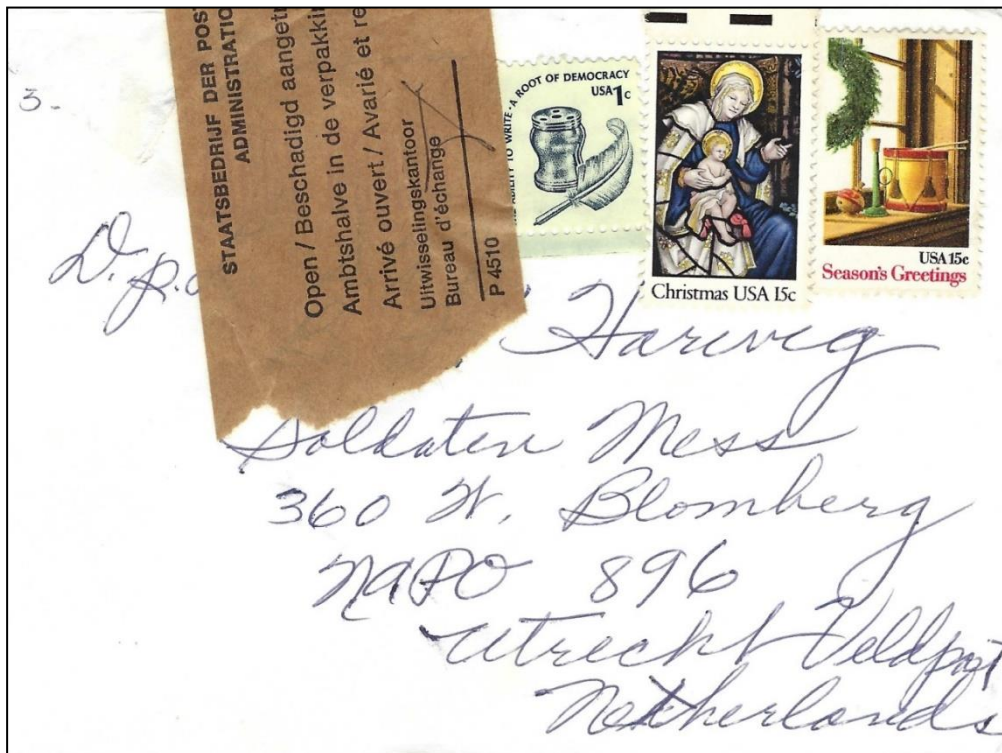 3.
STAATSBEDRIJF DER POST
ADMINISTRATIO
Open / Beschadigd aangetr
Ambtshalve in de verpakkin
Arrivé ouvert / Avarié et re
Uitwisselingskantoor
Bureau d'échange
P 4510
ABILITY TO WRITE·A ROOT OF DEMOCRACY
USA 1c
Christmas USA 15c
USA 15c
Season's Greetings
D.p.
Harweg
Soldaten Mess
360 W. Blomberg
NAPO 896
Utrecht Veldpost
Netherlands